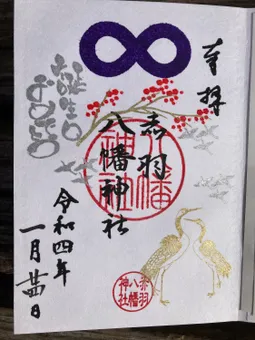 奉拝
赤羽
八幡神社
令和四年
一月廿四日
赤羽
八幡
神社